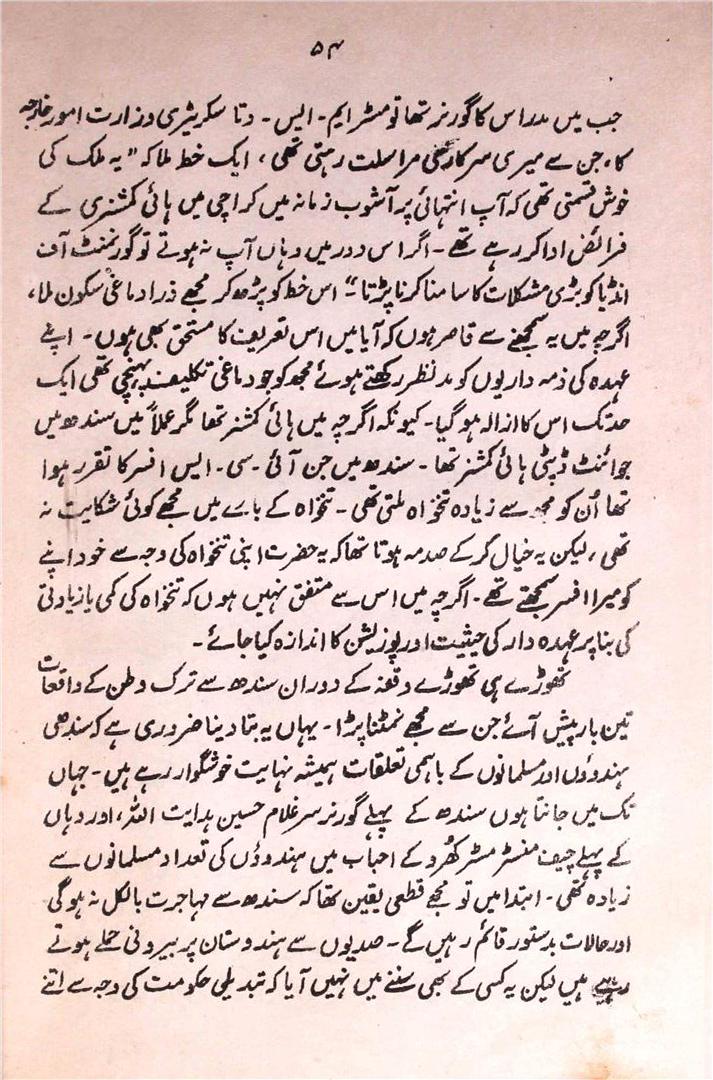 ۵۴
جب میں مدراس کا گورنر تھا تو مسٹر ایم۔ ایس۔ دتا سکریٹری وزارت امور خارجہ
کا، جن سے میری سرکاری مراسلت رہتی تھی، ایک خط ملا کہ "یہ ملک کی
خوش قسمتی تھی کہ آپ انتہائی پر آشوب زمانہ میں کراچی میں ہائی کمشنری کے
فرائض ادا کر رہے تھے۔ اگر اس دور میں وہاں آپ نہ ہوتے تو گورنمنٹ آف
انڈیا کو بڑی مشکلات کا سامنا کرنا پڑتا"۔ اس خط کو پڑھ کر مجھے ذرا دماغی سکون ملا،
اگرچہ میں یہ سمجھنے سے قاصر ہوں کہ آیا میں اس تعریف کا مستحق بھی ہوں۔ اپنے
عہدہ کی ذمہ داریوں کو مدنظر رکھتے ہوئے مجھ کو جو دماغی تکلیف پہنچی تھی ایک
حد تک اس کا ازالہ ہو گیا۔ کیونکہ اگرچہ میں ہائی کمشنر تھا مگر عملاً میں سندھ میں
جوائنٹ ڈپٹی ہائی کمشنر تھا۔ سندھ میں جن آئی۔ سی۔ ایس افسر کا تقرر ہوا
تھا اُن کو مجھ سے زیادہ تنخواہ ملتی تھی۔ تنخواہ کے بارے میں مجھے کوئی شکایت نہ
تھی، لیکن یہ خیال کر کے صدمہ ہوتا تھا کہ یہ حضرت اپنی تنخواہ کی وجہ سے خود اپنے
کو میرا افسر سمجھتے تھے۔ اگرچہ میں اس سے متفق نہیں ہوں کہ تنخواہ کی کمی یا زیادتی
کی بنا پر عہدہ دار کی حیثیت اور پوزیشن کا اندازہ کیا جائے۔
تھوڑے ہی تھوڑے وقفہ کے دوران سندھ سے ترک وطن کے واقعات
تین بار پیش آئے جن سے مجھے نمٹنا پڑا۔ یہاں یہ بتا دینا ضروری ہے کہ سندھی
ہندوؤں اور مسلمانوں کے باہمی تعلقات ہمیشہ نہایت خوشگوار رہے ہیں۔ جہاں
تک میں جانتا ہوں سندھ کے پہلے گورنر سر غلام حسین ہدایت اللہ، اور وہاں
کے پہلے چیف منسٹر مسٹر کھُرو کے احباب میں ہندوؤں کی تعداد مسلمانوں سے
زیادہ تھی۔ ابتدا میں تو مجھے قطعی یقین تھا کہ سندھ سے مہاجرت بالکل نہ ہوگی
اور حالات بدستور قائم رہیں گے۔ صدیوں سے ہندوستان پر بیرونی حملے ہوتے
رہے ہیں لیکن یہ کسی کے بھی سننے میں نہیں آیا کہ تبدیلی حکومت کی وجہ سے اتنے